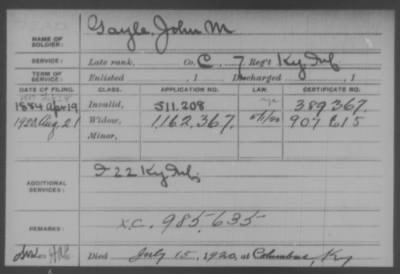 Gayle, John M
NAME OF SOLDIER:
SERVICE: Late rank, Co. C. 7 Reg't Ky. Inf.
TERM OF SERVICE: Enlisted , 1 Discharged , 1
DATE OF FILING. CLASS. APPLICATION NO. LAW. CERTIFICATE NO.
1884 Apr 19 Invalid, 511.208 389367.
1920, Aug, 21 Widow, 1,162,367. 901 615
Minor,
ADDITIONAL SERVICES:
F 22 Ky Inf.
REMARKS: XC. 985,635
Died July 15, 1920, at Columbus, Ky